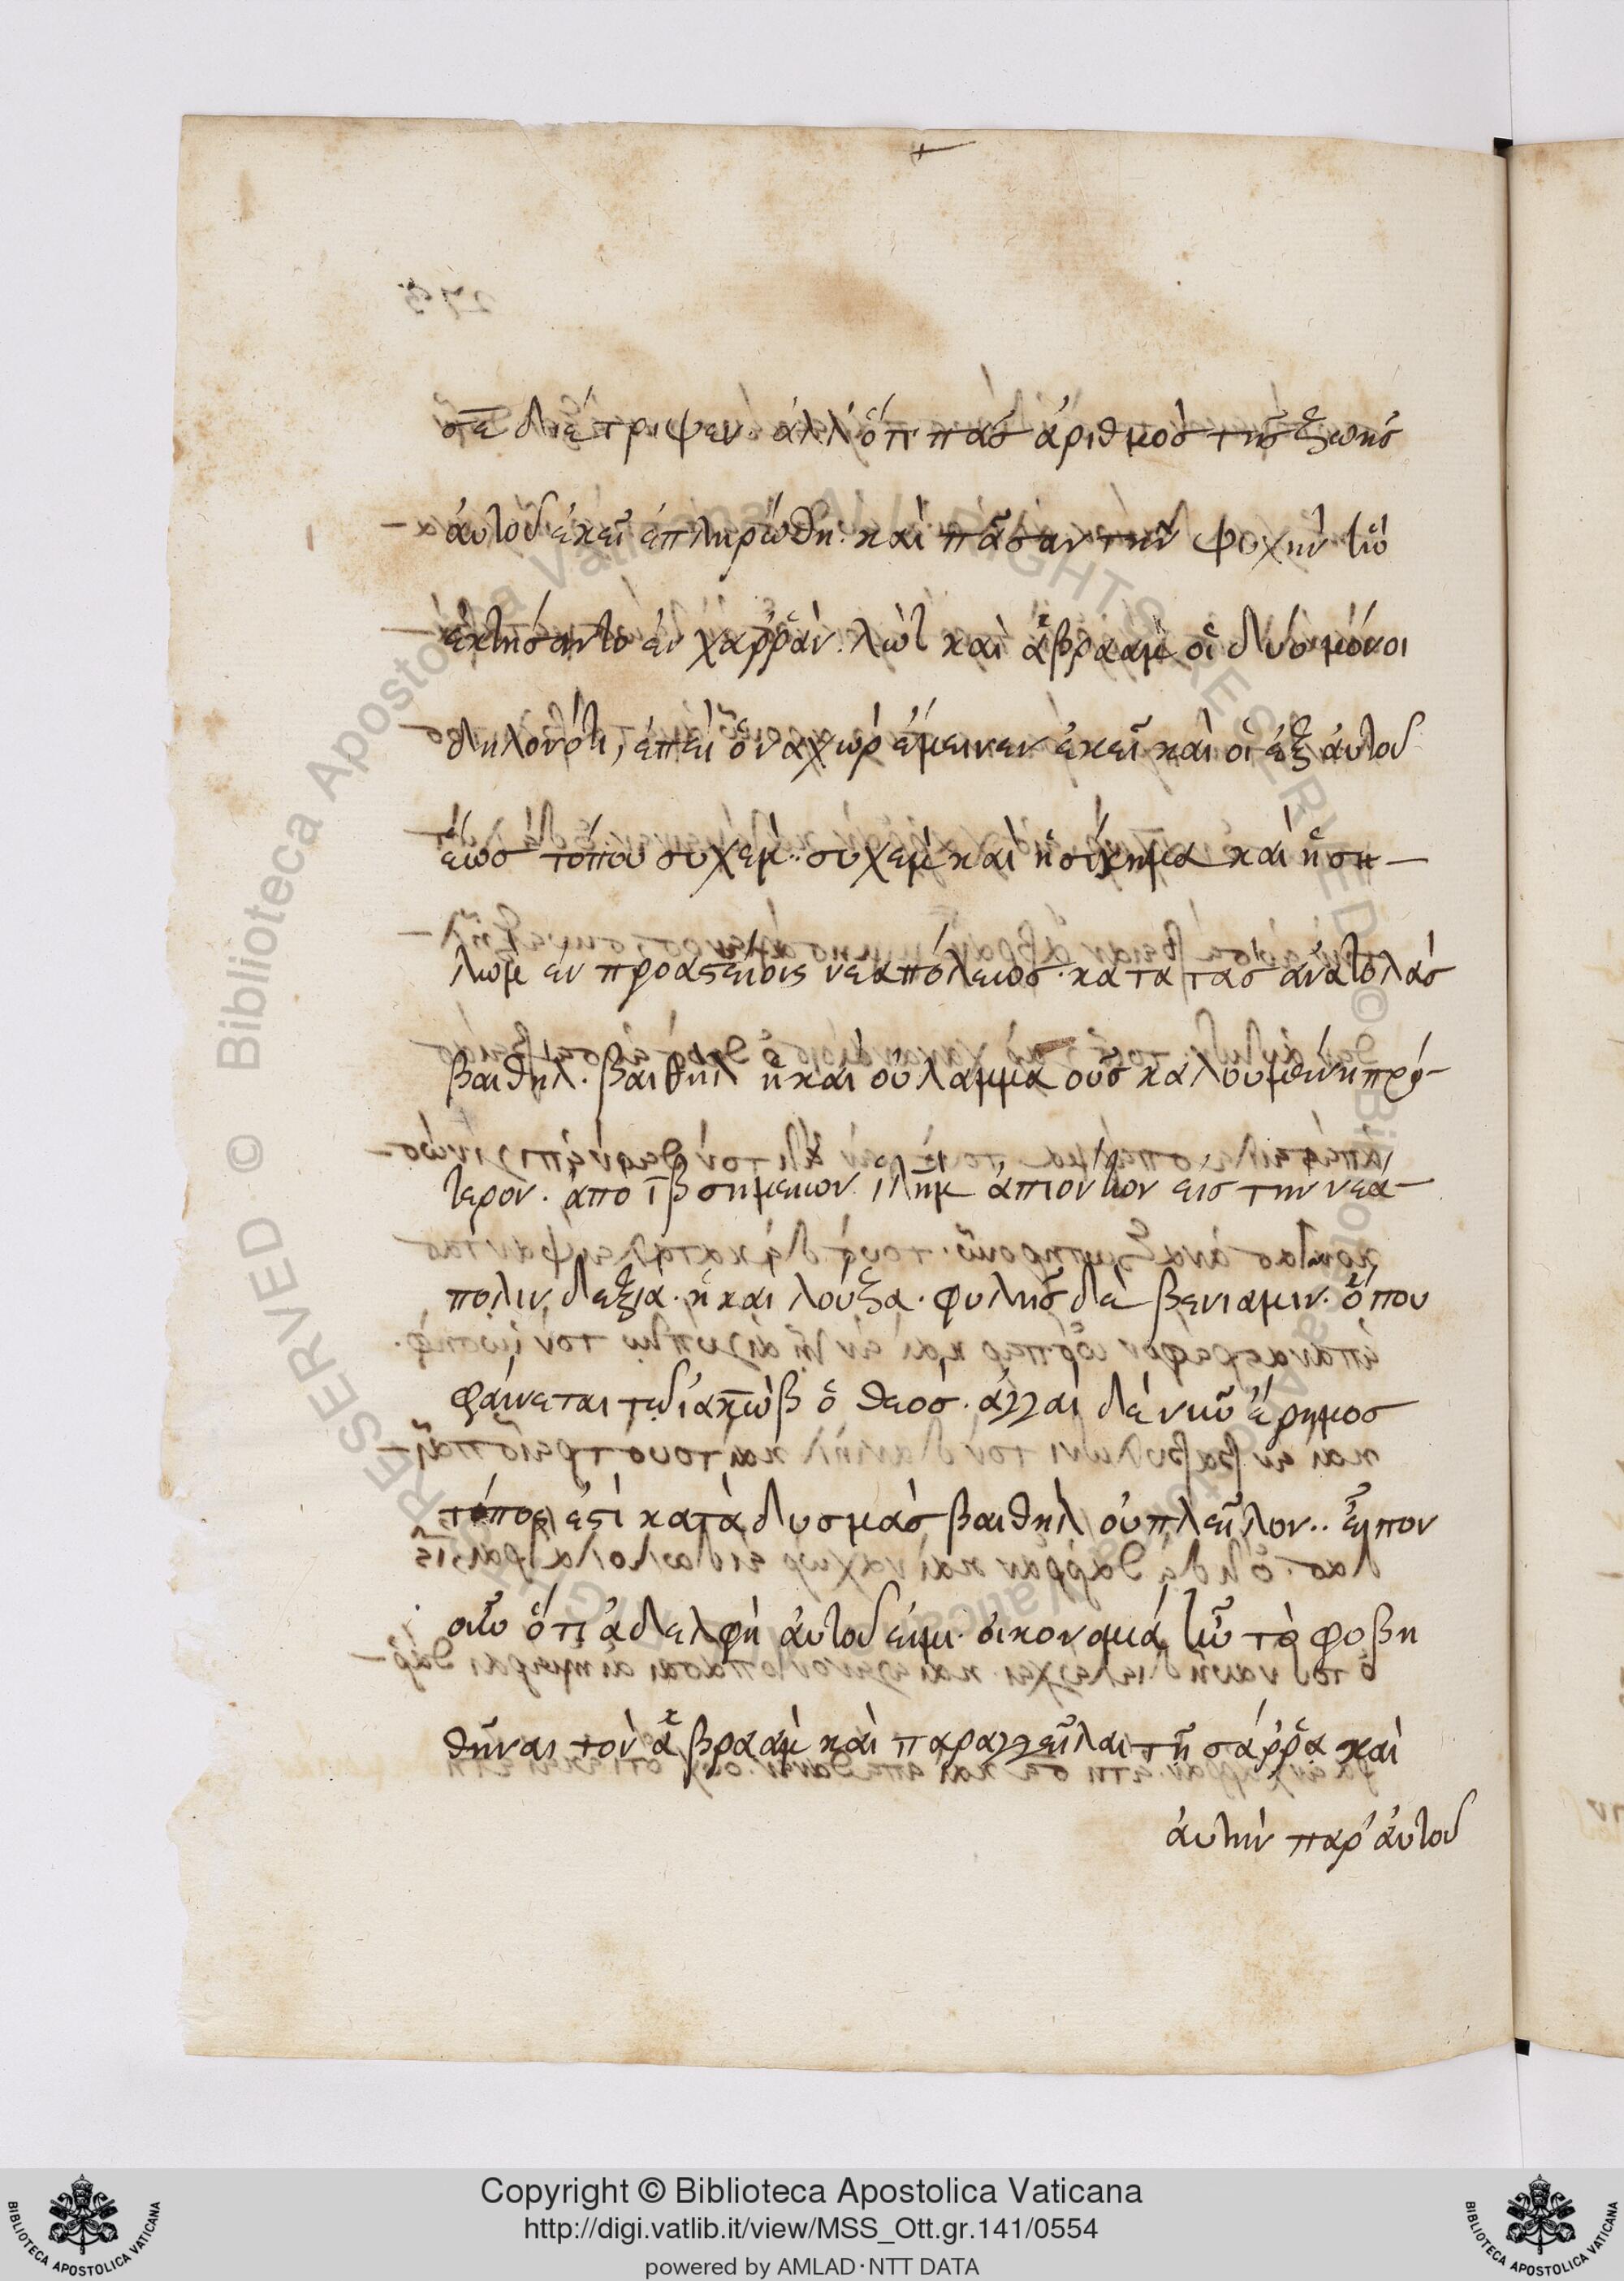 σε διέτριψεν· ἀλλ' ὅτι πᾶσ ἀριθμὸσ τῆσ ζωῆσ
αὐτοῦ ἐκεῖ ἐπληρώθη· καὶ πᾶσαν τὴν ψυχὴν ἣν
ἐκτήσαντο ἐν χαρρὰν· λὼτ καὶ ἀβραὰμ οἱ δύο μόνοι
δηλονότι, ἐπεὶ ὁ ναχὼρ ἔμεινεν ἐκεῖ καὶ οἱ ἐξ αὐτοῦ
ἕωσ τόπου συχέμ·· συχὲμ καὶ ἡ σίκημα καὶ ἡ ση-
λὼμ ἐν προαστείοις νεαπόλεωσ· κατα τὰσ ἀνατολὰσ
βαιθήλ· βαιθὴλ ἡ καὶ οὐλαμμα οὖσ καλουμένη πρό-
τερον· ἀπὸ ιβ σημείων ιλημ ἀπιόντων εἰσ τὴν νεά-
πολιν δεξιά· ἡ καὶ λούζα· φυλῆσ δὲ βενιαμιν· ὅπου
φαίνεται τῷ ἰακὼβ ὁ θεόσ· ἀγγαὶ δὲ νῦν ἔρημοσ
τόποσ ἐστὶ κατὰ δυσμὰσ βαιθὴλ οὐ πλεῖον·· εἶπον
οὖν ὅτι ἀδελφὴ αὐτοῦ εἰμι· οἰκονομία ἦν τὸ φοβη
θῆναι τὸν ἀβραὰμ καὶ παραγγεῖλαι τῇ σάρρᾳ καὶ
αὐτὴν παρ' αὐτοῦ
Copyright © Biblioteca Apostolica Vaticana
http://digi.vatlib.it/view/MSS_Ott.gr.141/0554
powered by AMLAD·NTT DATA